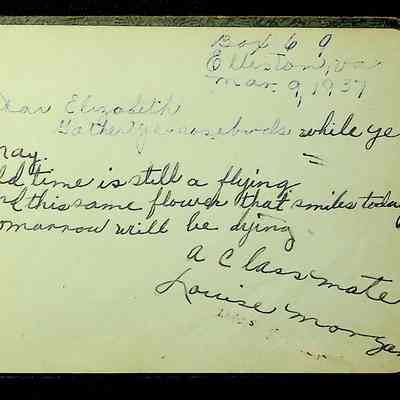 Box 69
Elliston, Va
Mar. 9, 1937
Dear Elizabeth
Gather ye rosebuds while ye
may.
Old time is still a flying
And this same flower that smiles today
Tomarrow will be dying
A Classmate
Louise Morgan